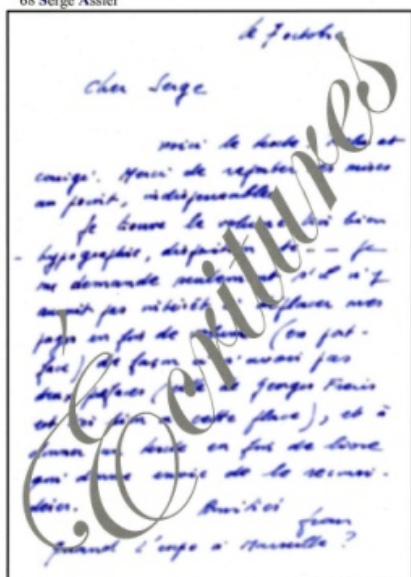 68 Serge Assier
le 7 octobre
Cher Serge
voici le texte relu et
corrigé. Merci de reporter les mises
au point, indispensables.
Je trouve le volume très bien
typographie, disposition, etc -- Je
me demande seulement s'il n'y
aurait pas intérêt à replacer mes
pages en fin de volume (en post-
face) de façon à n'avoir pas
deux préfaces (celle de Georges Freris
est si bien à cette place), et à
donner un texte en fin de livre
qui donne envie de le reconsi-
dérer.
Amitiés
Quand l'expo à Marseille ?
Écritures